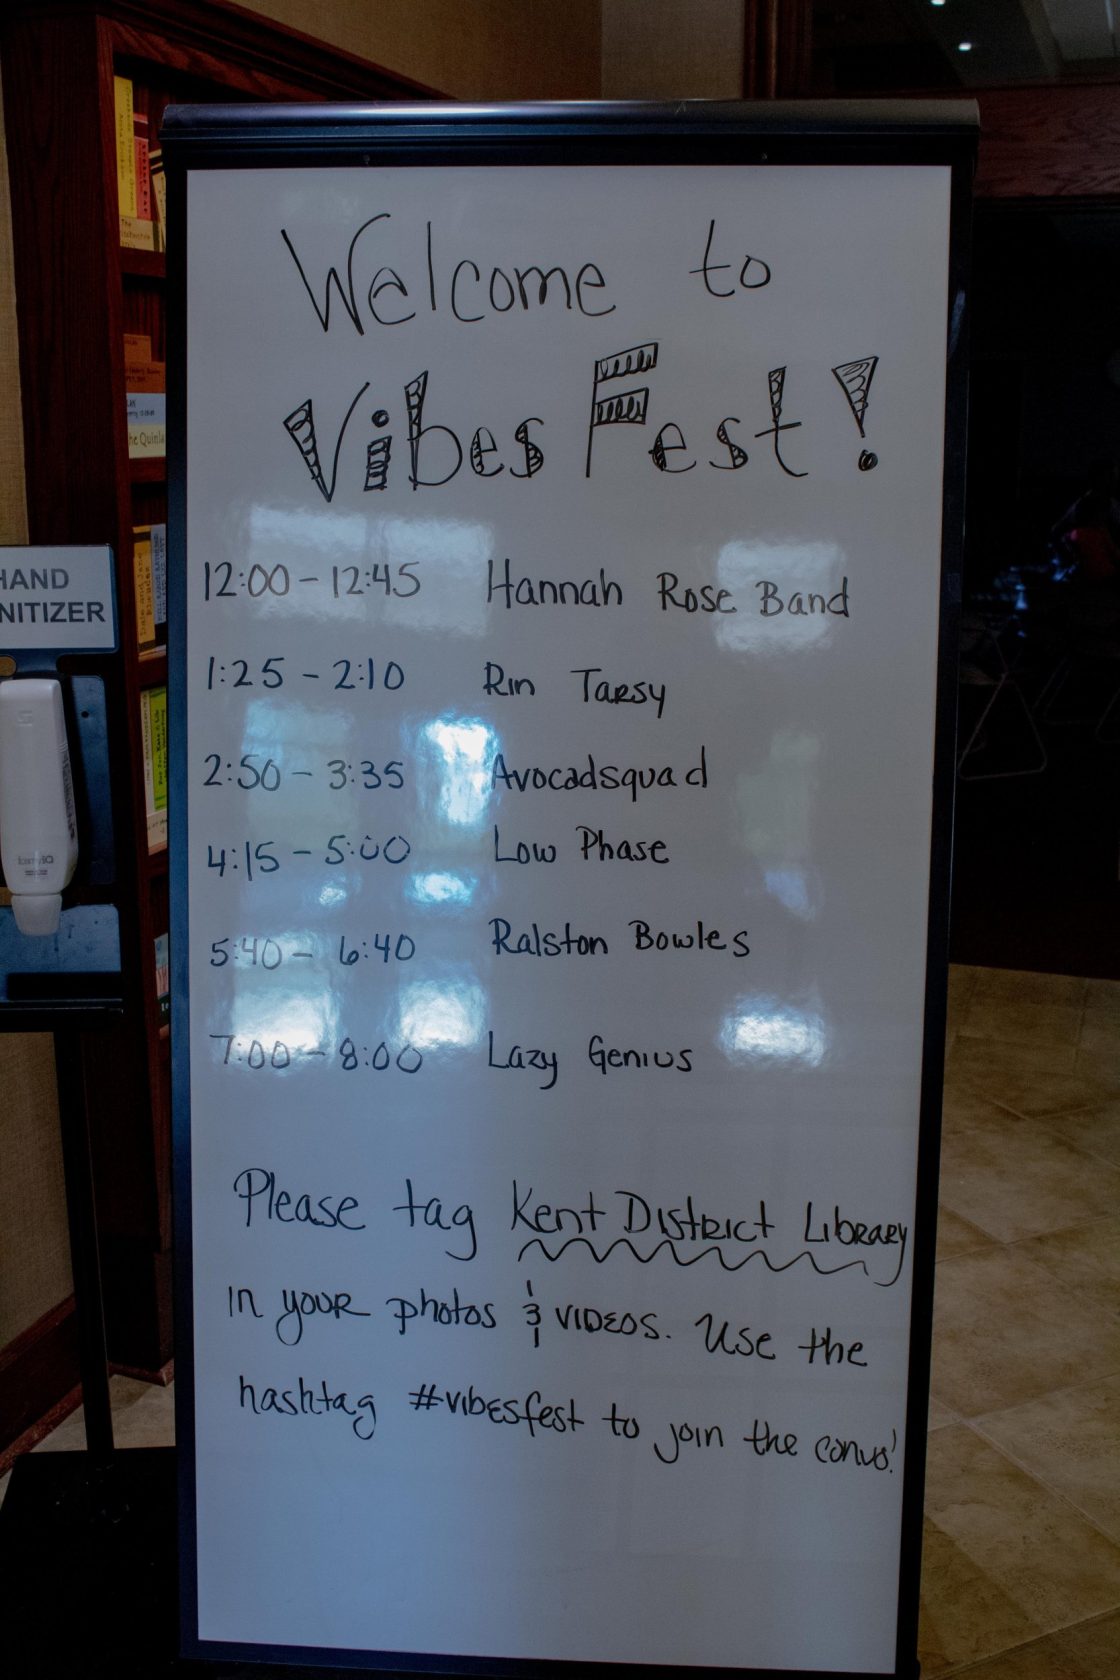 Welcome to
Vibes Fest!
12:00 - 12:45 Hannah Rose Band
1:25 - 2:10 Rin Tarsy
2:50 - 3:35 Avocadsquad
4:15 - 5:00 Low Phase
5:40 - 6:40 Ralston Bowles
7:00 - 8:00 Lazy Genius
Please tag Kent District Library
in your photos & videos. Use the
hashtag #vibesfest to join the convo!
HAND
NITIZER